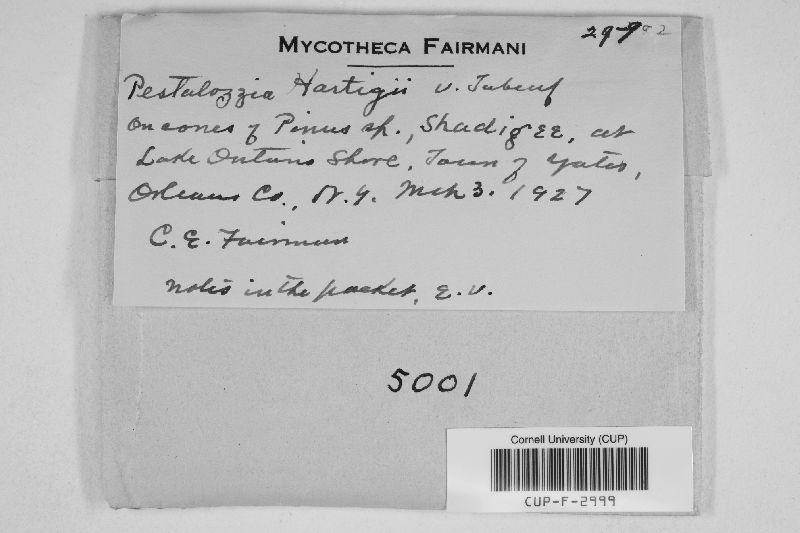 MYCOTHECA FAIRMANI
Pestalozzia Hartigii v. Tubeuf
on cones of Pinus sp., Shadigee, at
Lake Ontario Shore, Town of Yates,
Orleans Co., N.Y. Mch 3. 1927
C. E. Fairman
notes in the packet, E.V.
5001
Cornell University (CUP)
CUP-F-2999